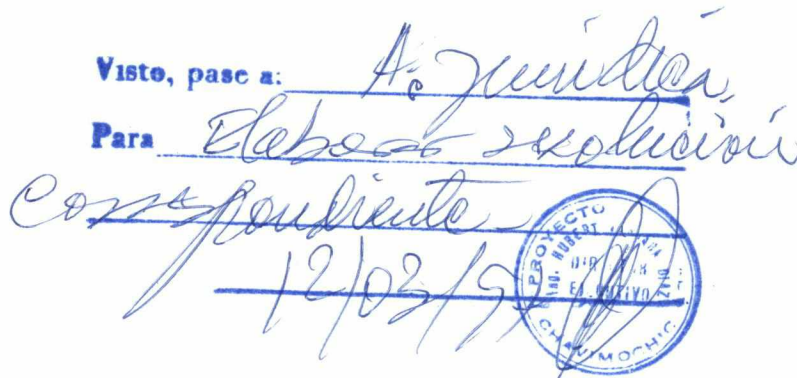 Visto, pase a: A. Jurídica,
Para Elaborar resolución
correspondiente
12/03/9
PROYECTO
HUBERT DIAZ
CHAVIMOCHIC